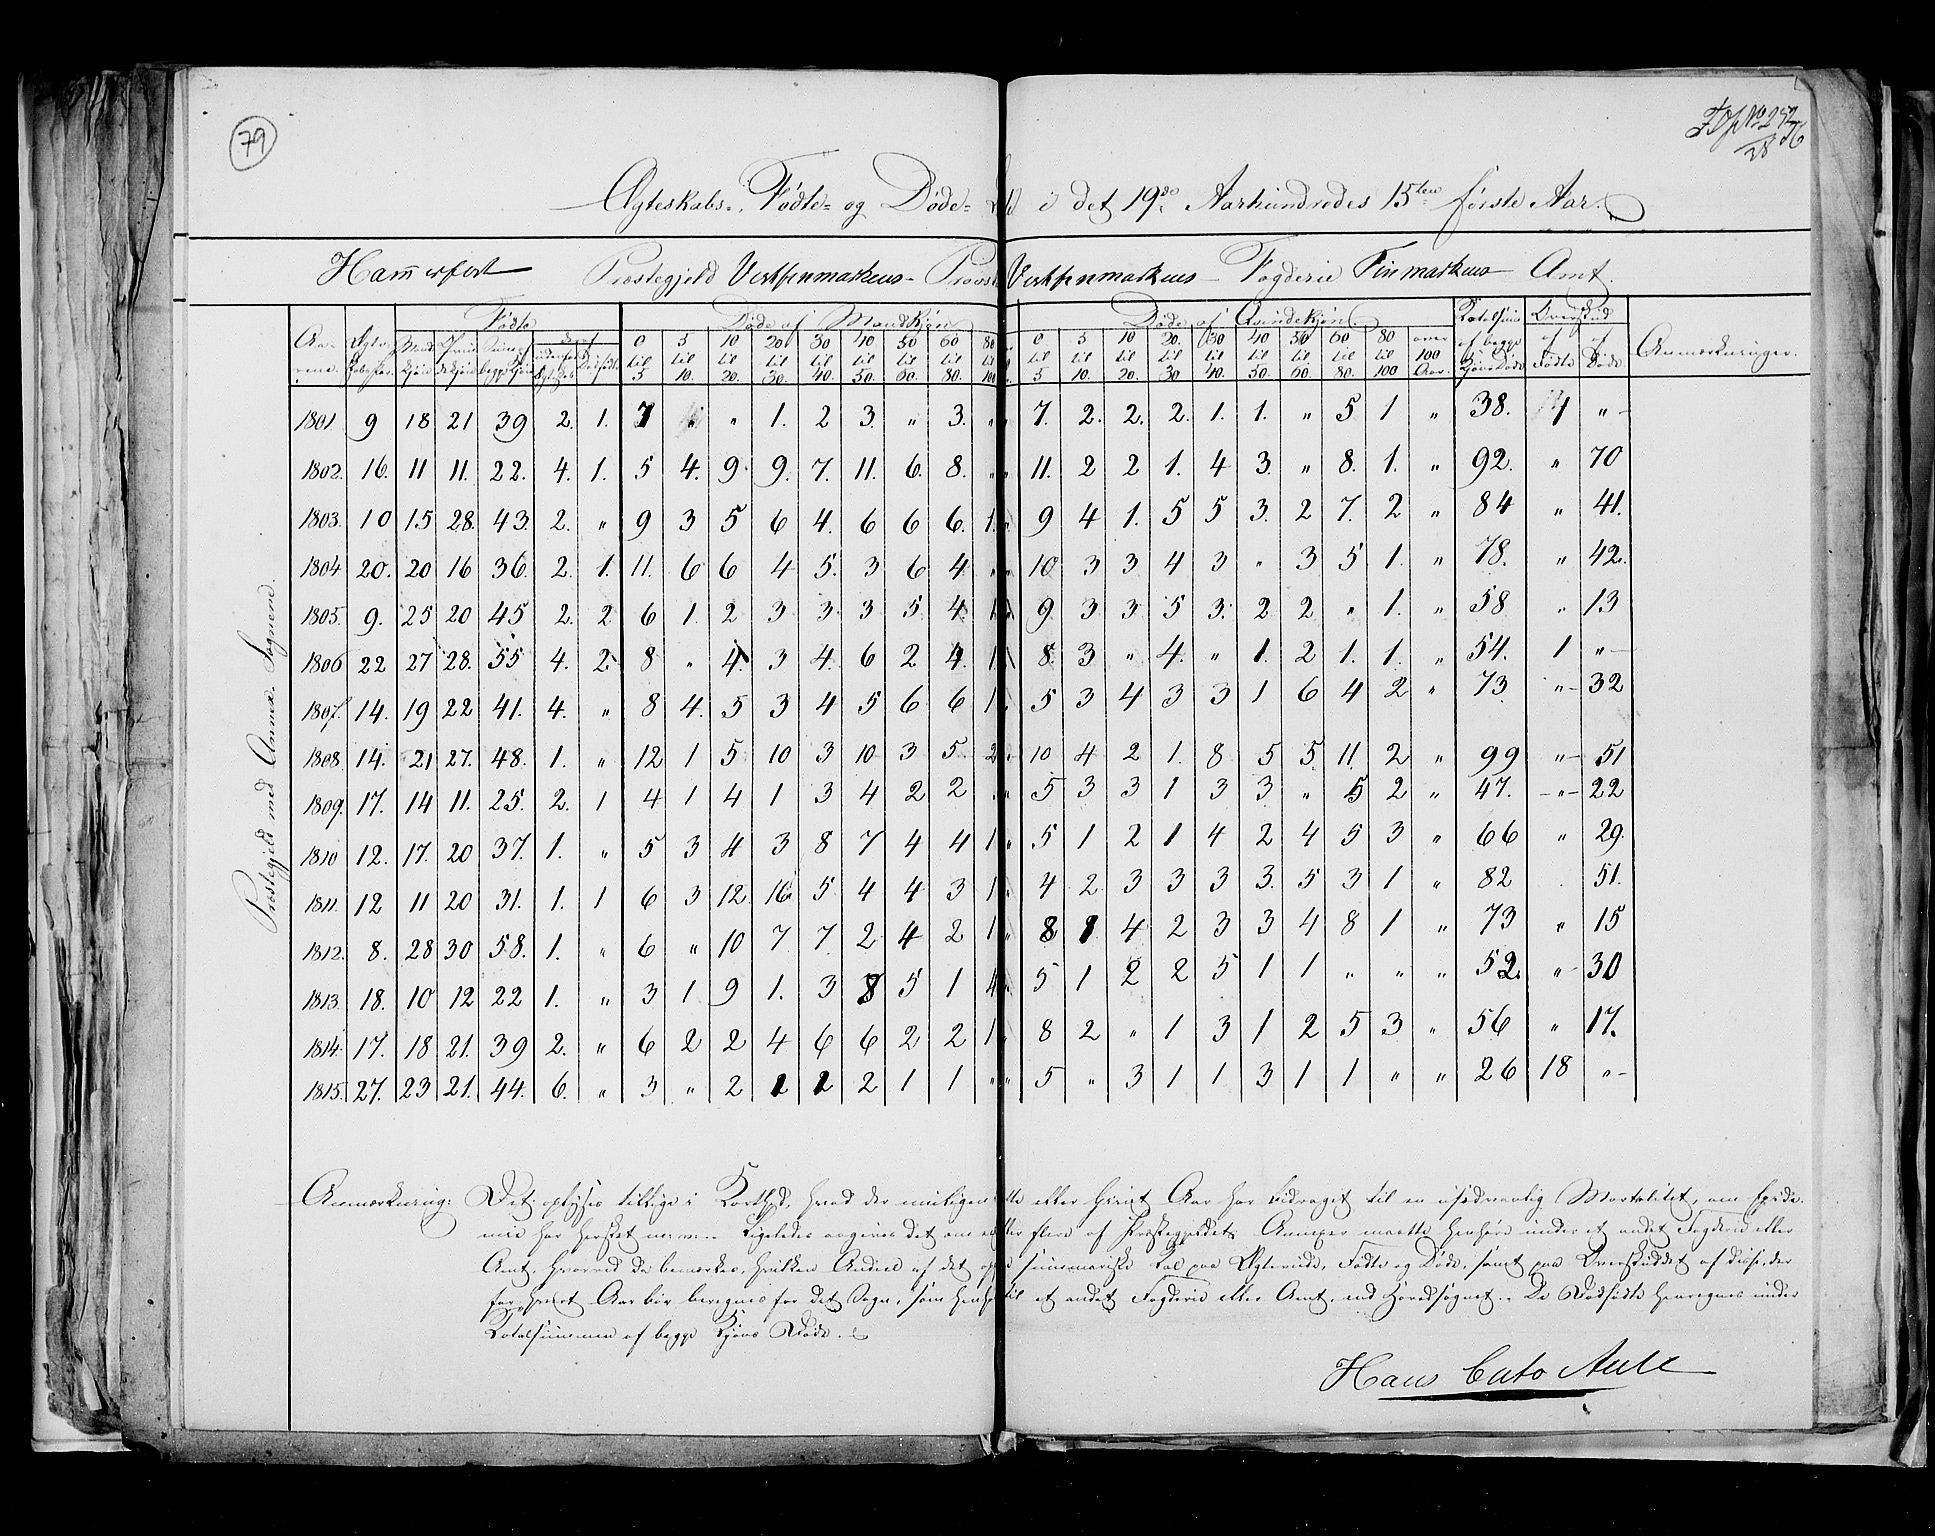 79
Ægteskabs-, Fødte- og Døde- i det 19de Aarhundredes 15ten første Aar.
Hammerfest Præstegjeld Vestfinmarkens Provsti Vestfinmarkens Fogderie Finmarkens Amt.
Fødte Døde af Mandkjøn Døde af Qvindekjøn Totalsum Overskud
0 5 10 20 30 40 50 60 80 0 5 10 20. 30 40 50 60 80 over af begge af af Anmærkninger.
til til til til til til til til til til til til til til til til til til 100 Fødte Døde
5 10. 20. 30. 40. 50. 60. 80. 100 5 10. 20 30 40. 50. 60. 80 100 Aar.
Præstegjeld med Annex Sognene.
1801. 9 18 21 39 2. 1. 7 " " 1. 2 3. " 3. " " 7. 2. 2. 2. 1. 1. " 5 1 " 38. 1 "
1802. 16. 11 11. 22. 4. 1. 5 4. 9. 9. 7. 11. 6. 8. " " 11. 2 2 1. 4 3. " 8. 1. " 92. " 70
1803. 10 15 28. 43. 2. " 9 3 5 6 4. 6 6 6. 1. " 9 4 1. 5 5 3. 2 7. 2 " 84 " 41.
1804 20. 20 16 36. 2. 1. 11. 6 6 4 5. 3 6 4 " " 10 3 3 4 3 " 3 5 1. " 78. " 42.
1805. 9. 25 20 45 2. 2 6 1. 2 3 3. 3 5. 4. 1 " 9 3 3 5 3. 2 2 " 1. " 58 " 13
1806 22 27 28. 55 4. 2. 8 " 4. 3 4. 6 2 4. 1 8. 3 " 4. " 1. 2 1. 1. " 54. 1 "
1807. 14. 19 22 41. 4. " 8 4. 5 3 4 5 6 6 1 5 3 4 3 3 1 6 4 2 " 73 " 32
1808. 14. 21 27. 48. 1. " 12 1 5 10 3 10 3 5. 2 10 4 2 1. 8 5 5 11. 2 " 99 " 51
1809. 17. 14 11. 25. 2. 1 4 1 4 1 3 4 2 2 " " 5 3 3 1 3 3 " 5 2 " 47. " 22
1810 12. 17. 20 37. 1. " 5 3 4 3 8 7 4 4 1 " 5 1 2 1 4 2 4 5 3 " 66 " 29.
1811. 12 11 20 31. 1. 1 6 3 12 16 5 4 4 3 1 4 2 3 3 3 3. 5 3 1 " 82 51.
1812. 8. 28 30 58. 1. " 6 " 10 7 7 2 4 2 1 8 1 4 2 3 3 4 8 1 " 73 " 15
1813. 18. 10 12 22 1. " 3 1 9 1. 3 8 5 1 4 5 1 2 2 5 1 1 " " " 52. " 30
1814. 17. 18 21. 39 2. " 6 2 2 4 6 6 2 2 1 8 2 " 1 3 1 2 5 3 " 56 " 17.
1815. 27. 23 21. 44. 6. " 3 " 2 1 2 2 1 1 " " 5 " 3 1 1 3 1 1 " " 26 18 "
Anmærkning: Det oplyses tillige i Korthed, hvad der muligen eller hvert Aar har bidraget til en usædvanlig Mortalitet, om Epide-
mie har hersket m: m: Ligeledes angives det om eller flere af Præstegjeldets Annexer maatte henhøre under et andet Fogderie eller
Amt, hvorved da bemærkes, hvilken Andeel af det summariske Tal paa Ægteviede, Fødte og Døde, samt paa Overskuddet af disse, der
for hvert Aar bør beregnes for det Sogn, som til et andet Fogderie eller Amt, end Hovedsognet. De Dødfødte henregnes under
Totalsummen af begge Kjøns Døde.
Hans Cato Aall